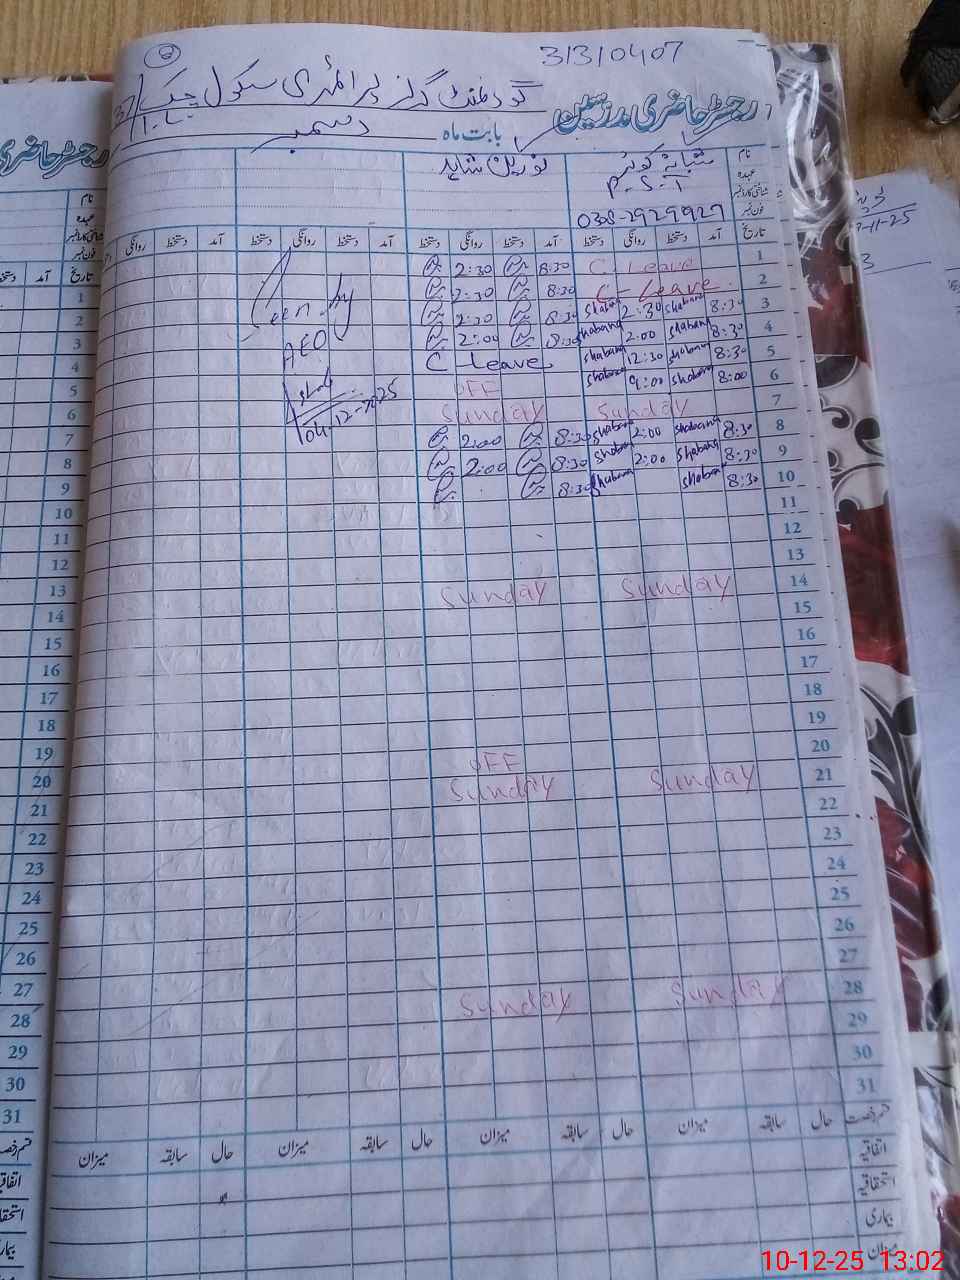 31310407
گورنمنٹ گرلز پرائمری سکول چک
رجسٹر حاضری مدرسین بابت ماہ دسمبر
نام شبانہ کوثر نورین شاہد
عہدہ P.S.T
شناختی کارڈ نمبر
فون نمبر 0308-2929929
تاریخ آمد دستخط روانگی دستخط آمد دستخط روانگی دستخط آمد دستخط روانگی دستخط آمد دستخط روانگی
1 C-Leave 8:30 2:30
2 C-Leave 8:30 2:30
3 8:30 shabana 2:30 shabana 8:30 2:30
4 8:30 shabana 2:00 shabana 8:30 2:00
5 8:30 shabana 12:30 shabana C-Leave
6 8:00 shabana 9:00 shabana OFF
7 Sunday Sunday
8 8:30 shabana 2:00 shabana 8:30 2:00
9 8:30 shabana 2:00 shabana 8:30 2:00
10 8:30 shabana shabana 8:30
11
12
13
14 Sunday Sunday
15
16
17
18
19
20 OFF
21 Sunday Sunday
22
23
24
25
26
27
28 Sunday Sunday
29
30
31
Seen by
AEO
04-12-2025
قسم رخصت حال سابقہ میزان حال سابقہ میزان حال سابقہ میزان حال سابقہ میزان
اتفاقیہ
استحقاقیہ
بیماری
میزان
رجسٹر حاضری
نام
عہدہ
شناختی کارڈ نمبر
فون نمبر
تاریخ آمد
1
2
3
4
5
6
7
8
9
10
11
12
13
14
15
16
17
18
19
20
21
22
23
24
25
26
27
28
29
30
31
10-12-25 13:02